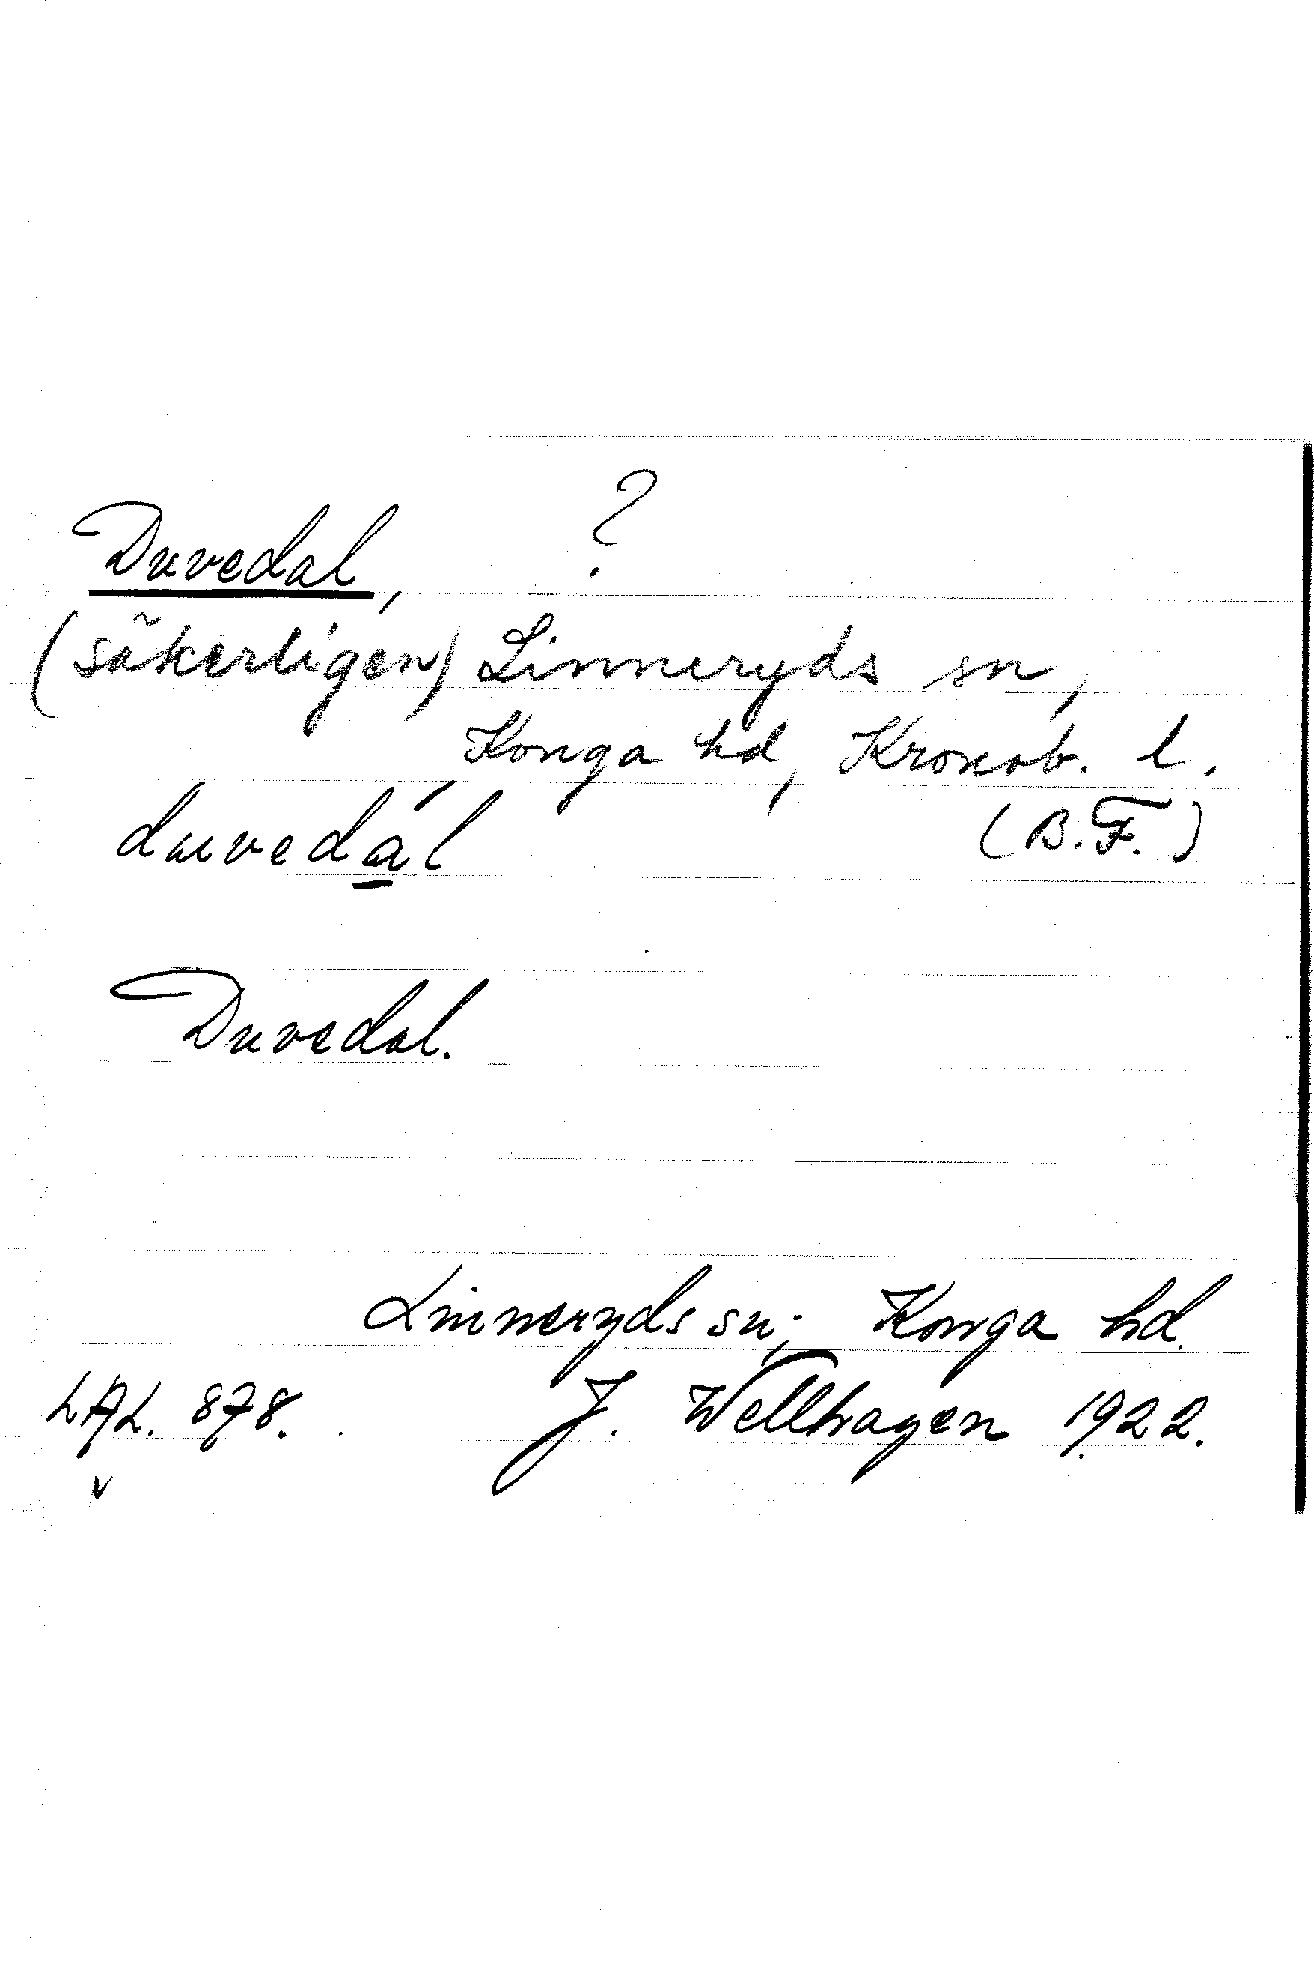 Duvedal, ?
(säkerligen) Linneryds sn,
Konga hd, Kronob. l.
duvedál (B.F.)
Duvedal.
Linneryds sn; Konga hd.
LAL. 878. J. Wellhagen 1922.
v